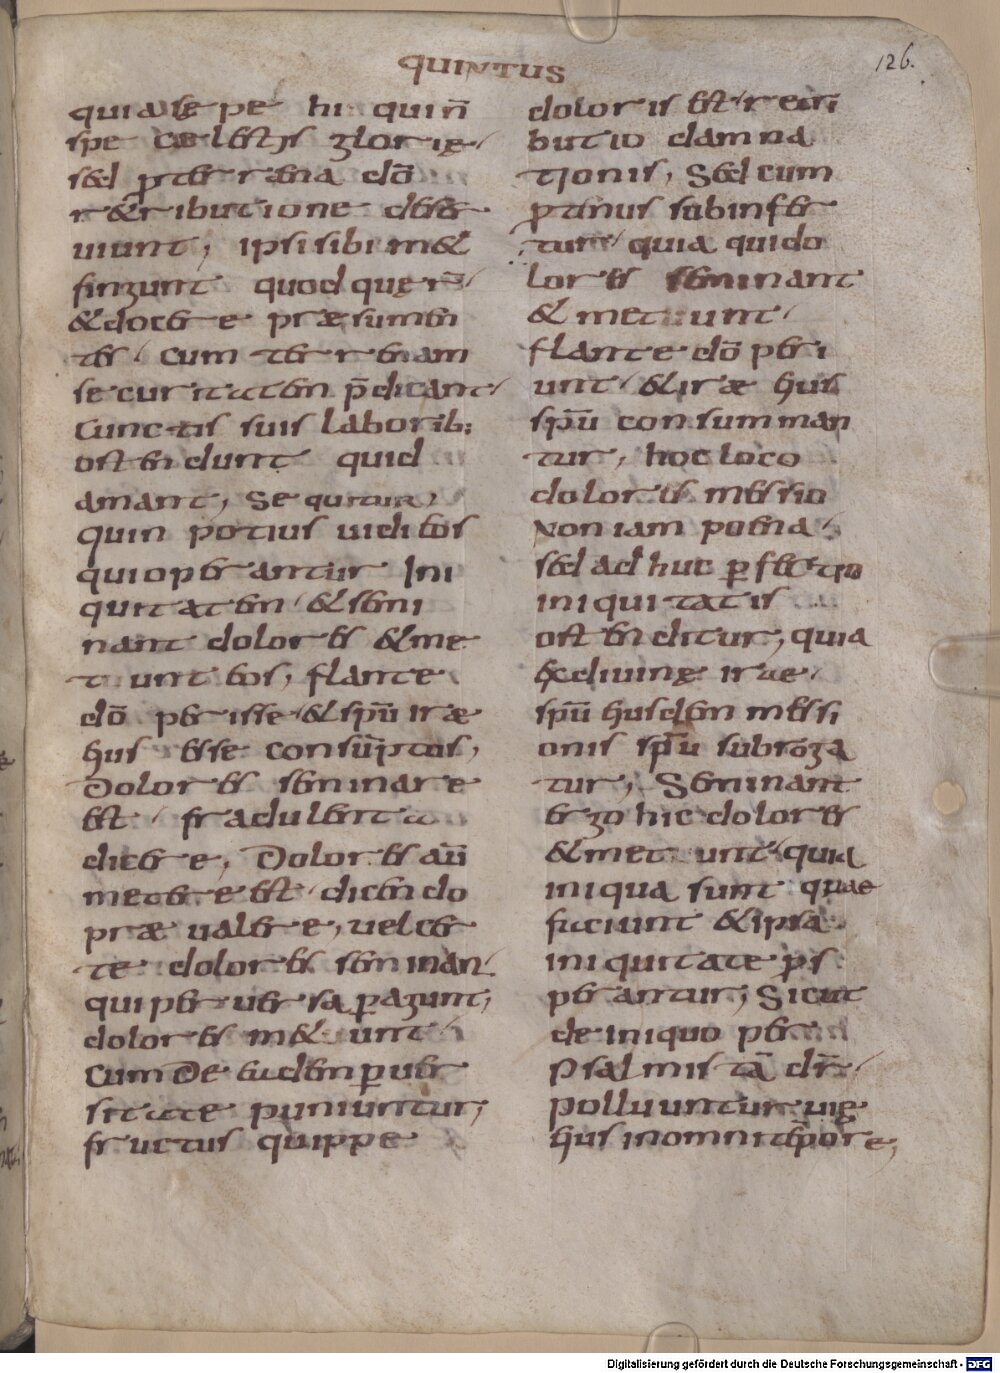 QUINTUS
126.
quia sępe hi qui n̄
spe cęlestis glorię
sed p̱ terrena do̅
retributione deser
uiunt; ipsi sibi met
fingunt quod quęr̅
& docere præsumen
tes. cum terrenam
securitatem p̄dicant
cunctis suis laborib;
ostendunt quid
amant; Sequitur
quin potius uidi eos
qui operantur Ini
quitatem & semi
nant dolores & me
tunt eos; flante
do̅ perisse & spu̅ iræ
eius esse consu̅ptos;
Dolores seminare
est fraudulenta
dicere; Dolores au̅
metere est dicendo
præualere; uel cer
te dolores seminan
qui peruersa p̱agunt;
dolores metunt
cum De eadem p̱uer
sitate puniuntur;
fructus quippe
doloris est retri
butio damna
tionis; Sed cum
p̱tinus subinfer
tur quia qui do
lores seminant
& metunt
flante do̅ peri
unt & iræ eius
spu̅ consumman
tur; hoc loco
doloris messio
Non iam poena
sed adhuc p̱fectio
iniquitatis
ostenditur; quia
ex diuinę irae
spu̅ eiusdem messi
onis spu̅ subroga
tur; Seminant
ergo hic dolores
& metunt quia
iniqua sunt quae
faciunt & ipsa
iniquitate p̱s
perantur; Sicut
de iniquo per
Psalmista̅ dr̅
Polluuntur uię
eius in omni te̅pore;
Digitalisierung gefördert durch die Deutsche Forschungsgemeinschaft - DFG